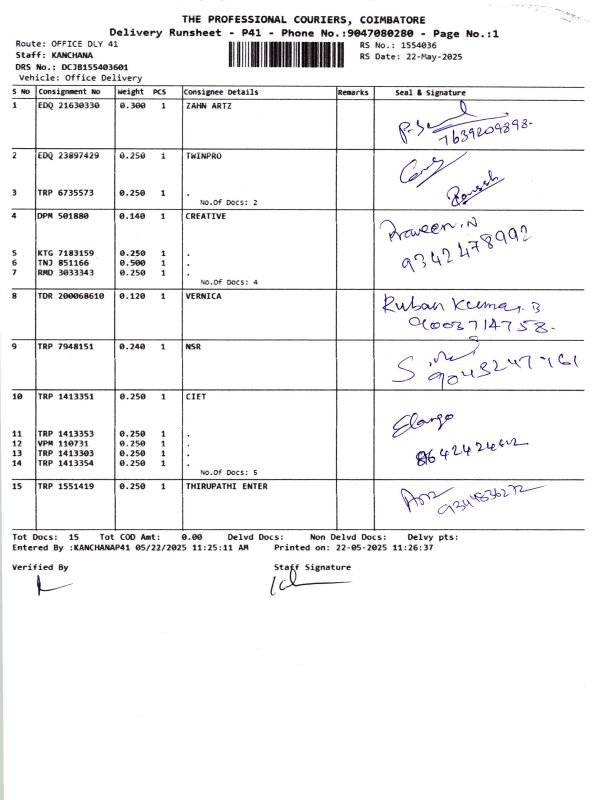 THE PROFESSIONAL COURIERS, COIMBATORE
Delivery Runsheet - P41 - Phone No.:9047080280 - Page No.:1
Route: OFFICE DLY 41 RS No.: 1554036
Staff: KANCHANA RS Date: 22-May-2025
DRS No.: DCJB155403601
Vehicle: Office Delivery
S No Consignment No Weight PCS Consignee Details Remarks Seal & Signature
1 EDQ 21630330 0.300 1 ZAHN ARTZ
7639209898-
2 EDQ 23897429 0.250 1 TWINPRO
3 TRP 6735573 0.250 1 .
No.Of Docs: 2
4 DPM 501880 0.140 1 CREATIVE Praveen.N
9342478992
5 KTG 7183159 0.250 1 .
6 TNJ 851166 0.500 1 .
7 RMD 3033343 0.250 1 .
No.Of Docs: 4
8 TDR 200068610 0.120 1 VERNICA Ruban Kumar. B
9003714758-
9 TRP 7948151 0.240 1 NSR
10 TRP 1413351 0.250 1 CIET
Elango
11 TRP 1413353 0.250 1 .
12 VPM 110731 0.250 1 .
13 TRP 1413303 0.250 1 .
14 TRP 1413354 0.250 1 .
No.Of Docs: 5
15 TRP 1551419 0.250 1 THIRUPATHI ENTER
Tot Docs: 15 Tot COD Amt: 0.00 Delvd Docs: Non Delvd Docs: Delvy pts:
Entered By :KANCHANAP41 05/22/2025 11:25:11 AM Printed on: 22-05-2025 11:26:37
Verified By Staff Signature